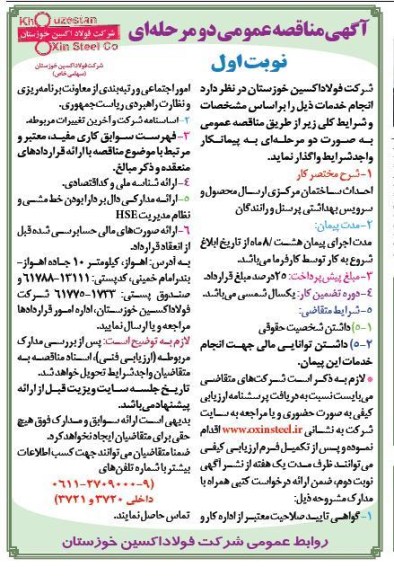 Khouzestan
شرکت فولاد اکسین خوزستان
Oxin Steel Co
شرکت فولاد اکسین خوزستان
(سهامی خاص)
آگهی مناقصه عمومی دو مرحله‌ای
نوبت اول
شرکت فولاد اکسین خوزستان در نظر دارد
انجام خدمات ذیل را بر اساس مشخصات
و شرایط کلی زیر از طریق مناقصه عمومی
به صورت دو مرحله‌ای به پیمانکار
واجد شرایط واگذار نماید.
۱-شرح مختصر کار
احداث ساختمان مرکزی ارسال محصول و
سرویس بهداشتی پرسنل و رانندگان
۲-مدت پیمان:
مدت اجرای پیمان هشت/۸ ماه از تاریخ ابلاغ
شروع به کار توسط کارفرما می‌باشد.
۳-مبلغ پیش پرداخت: ۲۵درصد مبلغ قرارداد.
۴-دوره تضمین کار: یکسال شمسی می‌باشد.
۵-شرایط متقاضی:
۵-۱) داشتن شخصیت حقوقی
۵-۲) داشتن توانایی مالی جهت انجام
خدمات این پیمان.
* لازم به ذکر است شرکت‌های متقاضی
می‌بایست نسبت به دریافت پرسشنامه ارزیابی
کیفی به صورت حضوری و یا مراجعه به سایت
شرکت به نشانی www.oxinsteel.ir اقدام
نموده و پس از تکمیل فرم ارزیابی کیفی
می‌توانند ظرف مدت یک هفته از نشر آگهی
نوبت دوم، ضمن ارائه درخواست کتبی همراه با
مدارک مشروحه ذیل:
۱-گواهی تایید صلاحیت معتبر از اداره کار و
امور اجتماعی و رتبه‌بندی از معاونت برنامه‌ریزی
و نظارت راهبردی ریاست جمهوری.
۲-اساسنامه شرکت و آخرین تغییرات مربوطه.
۳-فهرست سوابق کاری مفید، معتبر و
مرتبط با موضوع مناقصه با ارائه قراردادهای
منعقده و ذکر مبالغ.
۴-ارائه شناسه ملی و کد اقتصادی.
۵-ارائه مدارکی دال بر دارا بودن خط مشی و
نظام مدیریت HSE
۶-ارائه صورت‌های مالی حسابرسی شده قبل
از انعقاد قرارداد.
به آدرس: اهواز، کیلومتر ۱۰ جاده اهواز-
بندر امام خمینی، کدپستی: ۱۳۱۱۱-۶۱۷۸۸ و
صندوق پستی: ۱۷۳۳-۶۱۷۷۵ شرکت
فولاد اکسین خوزستان، اداره امور قراردادها
مراجعه و یا ارسال نمایند.
لازم به توضیح است: پس از بررسی مدارک
مربوطه (ارزیابی فنی)، اسناد مناقصه به
متقاضیان واجد شرایط تحویل خواهد شد.
تاریخ جلسه سایت ویزیت قبل از ارائه
پیشنهاد می‌باشد.
بدیهی است ارائه سوابق و مدارک فوق هیچ
حقی برای متقاضیان ایجاد نخواهد کرد.
ضمنا متقاضیان می‌توانند جهت کسب اطلاعات
بیشتر با شماره تلفن‌های
۰۶۱۱-۲۷۰۹۰۰۰-۹)
داخلی ۳۷۲۰ و ۳۷۲۱)
تماس حاصل نمایند.
روابط عمومی شرکت فولاد اکسین خوزستان